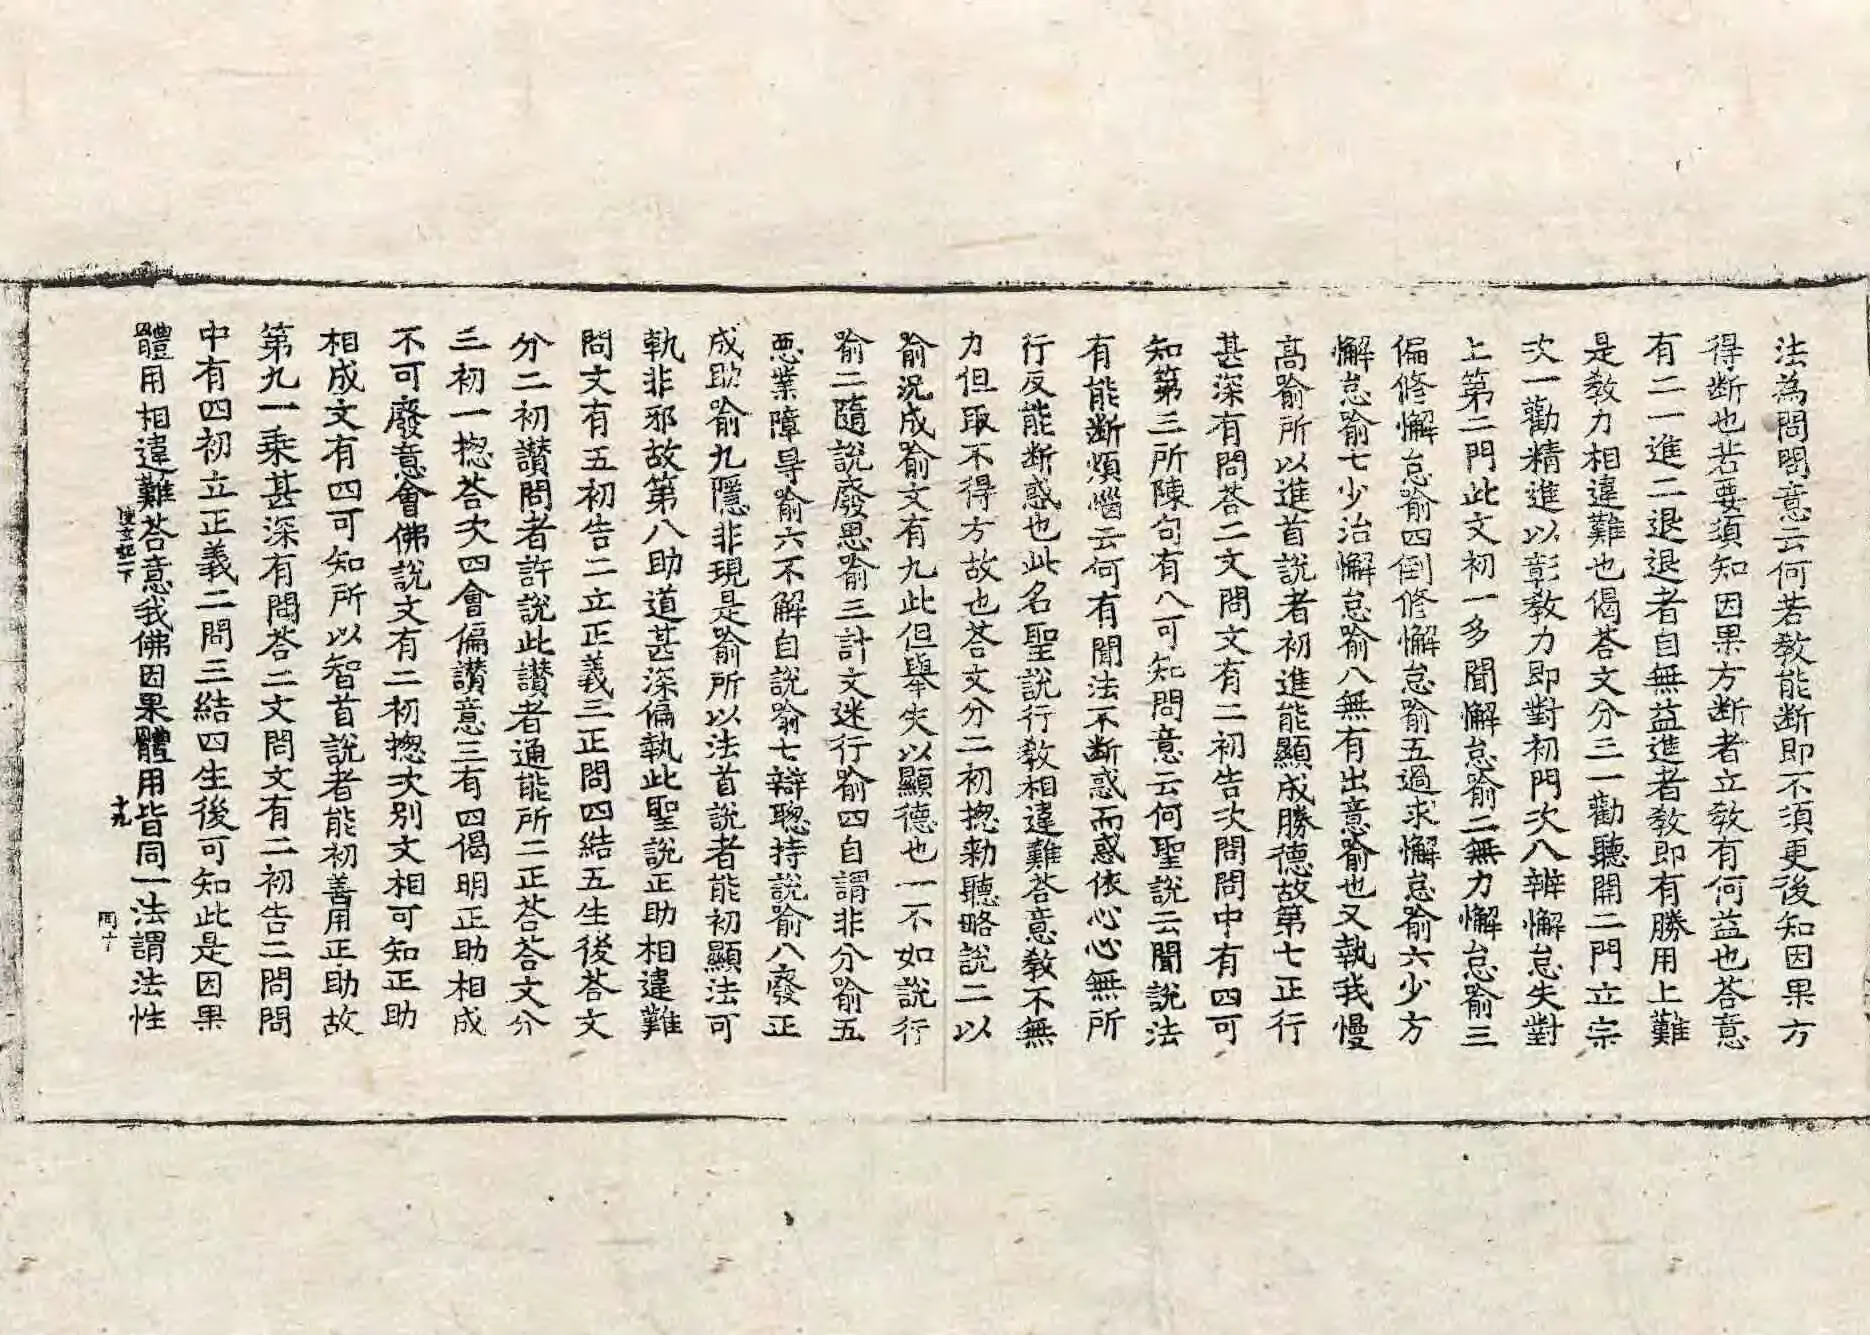 法為問問意云何若教能断即不須更後知因果方
得断也若要須知因果方断者立教有何益也荅意
有二一進二退退者自無益進者教即有勝用上難
是教力相違難也偈荅文分三一勸聽開二門立宗
次一勸精進以彰教力即對初門次八辨懈怠失對
上第二門此文初一多聞懈怠喻二無力懈怠喻三
偏修懈怠喻四倒修懈怠喻五過求懈怠喻六少方
懈怠喻七少治懈怠喻八無有出意喻也又執我慢
高喻所以進首說者初進能顯成勝德故第七正行
甚深有問荅二文問文有二初告次問問中有四可
知第三所陳句有八可知問意云何聖說云聞說法
有能断煩惱云何有聞法不断惑而惑依心心無所
行反能断惑也此名聖說行教相違難荅意教不無
力但取不得方故也荅文分二初揔勑聽略說二以
喻況成喻文有九此但舉失以顯德也一不如說行
喻二隨說廢思喻三計文迷行喻四自謂非分喻五
惡業障㝵喻六不解自說喻七辯聦持說喻八廢正
成助喻九隱非現是喻所以法首說者能初顯法可
執非邪故第八助道甚深偏執此聖說正助相違難
問文有五初告二立正義三正問四結五生後荅文
分二初讃問者許說此讃者通能所二正荅荅文分
三初一揔荅次四會偏讃意三有四偈明正助相成
不可廢意會佛說文有二初揔次別文相可知正助
相成文有四可知所以智首說者能初善用正助故
第九一乘甚深有問荅二文問文有二初告二問問
中有四初立正義二問三結四生後可知此是因果
體用相違難荅意我佛因果體用皆同一法謂法性
十九